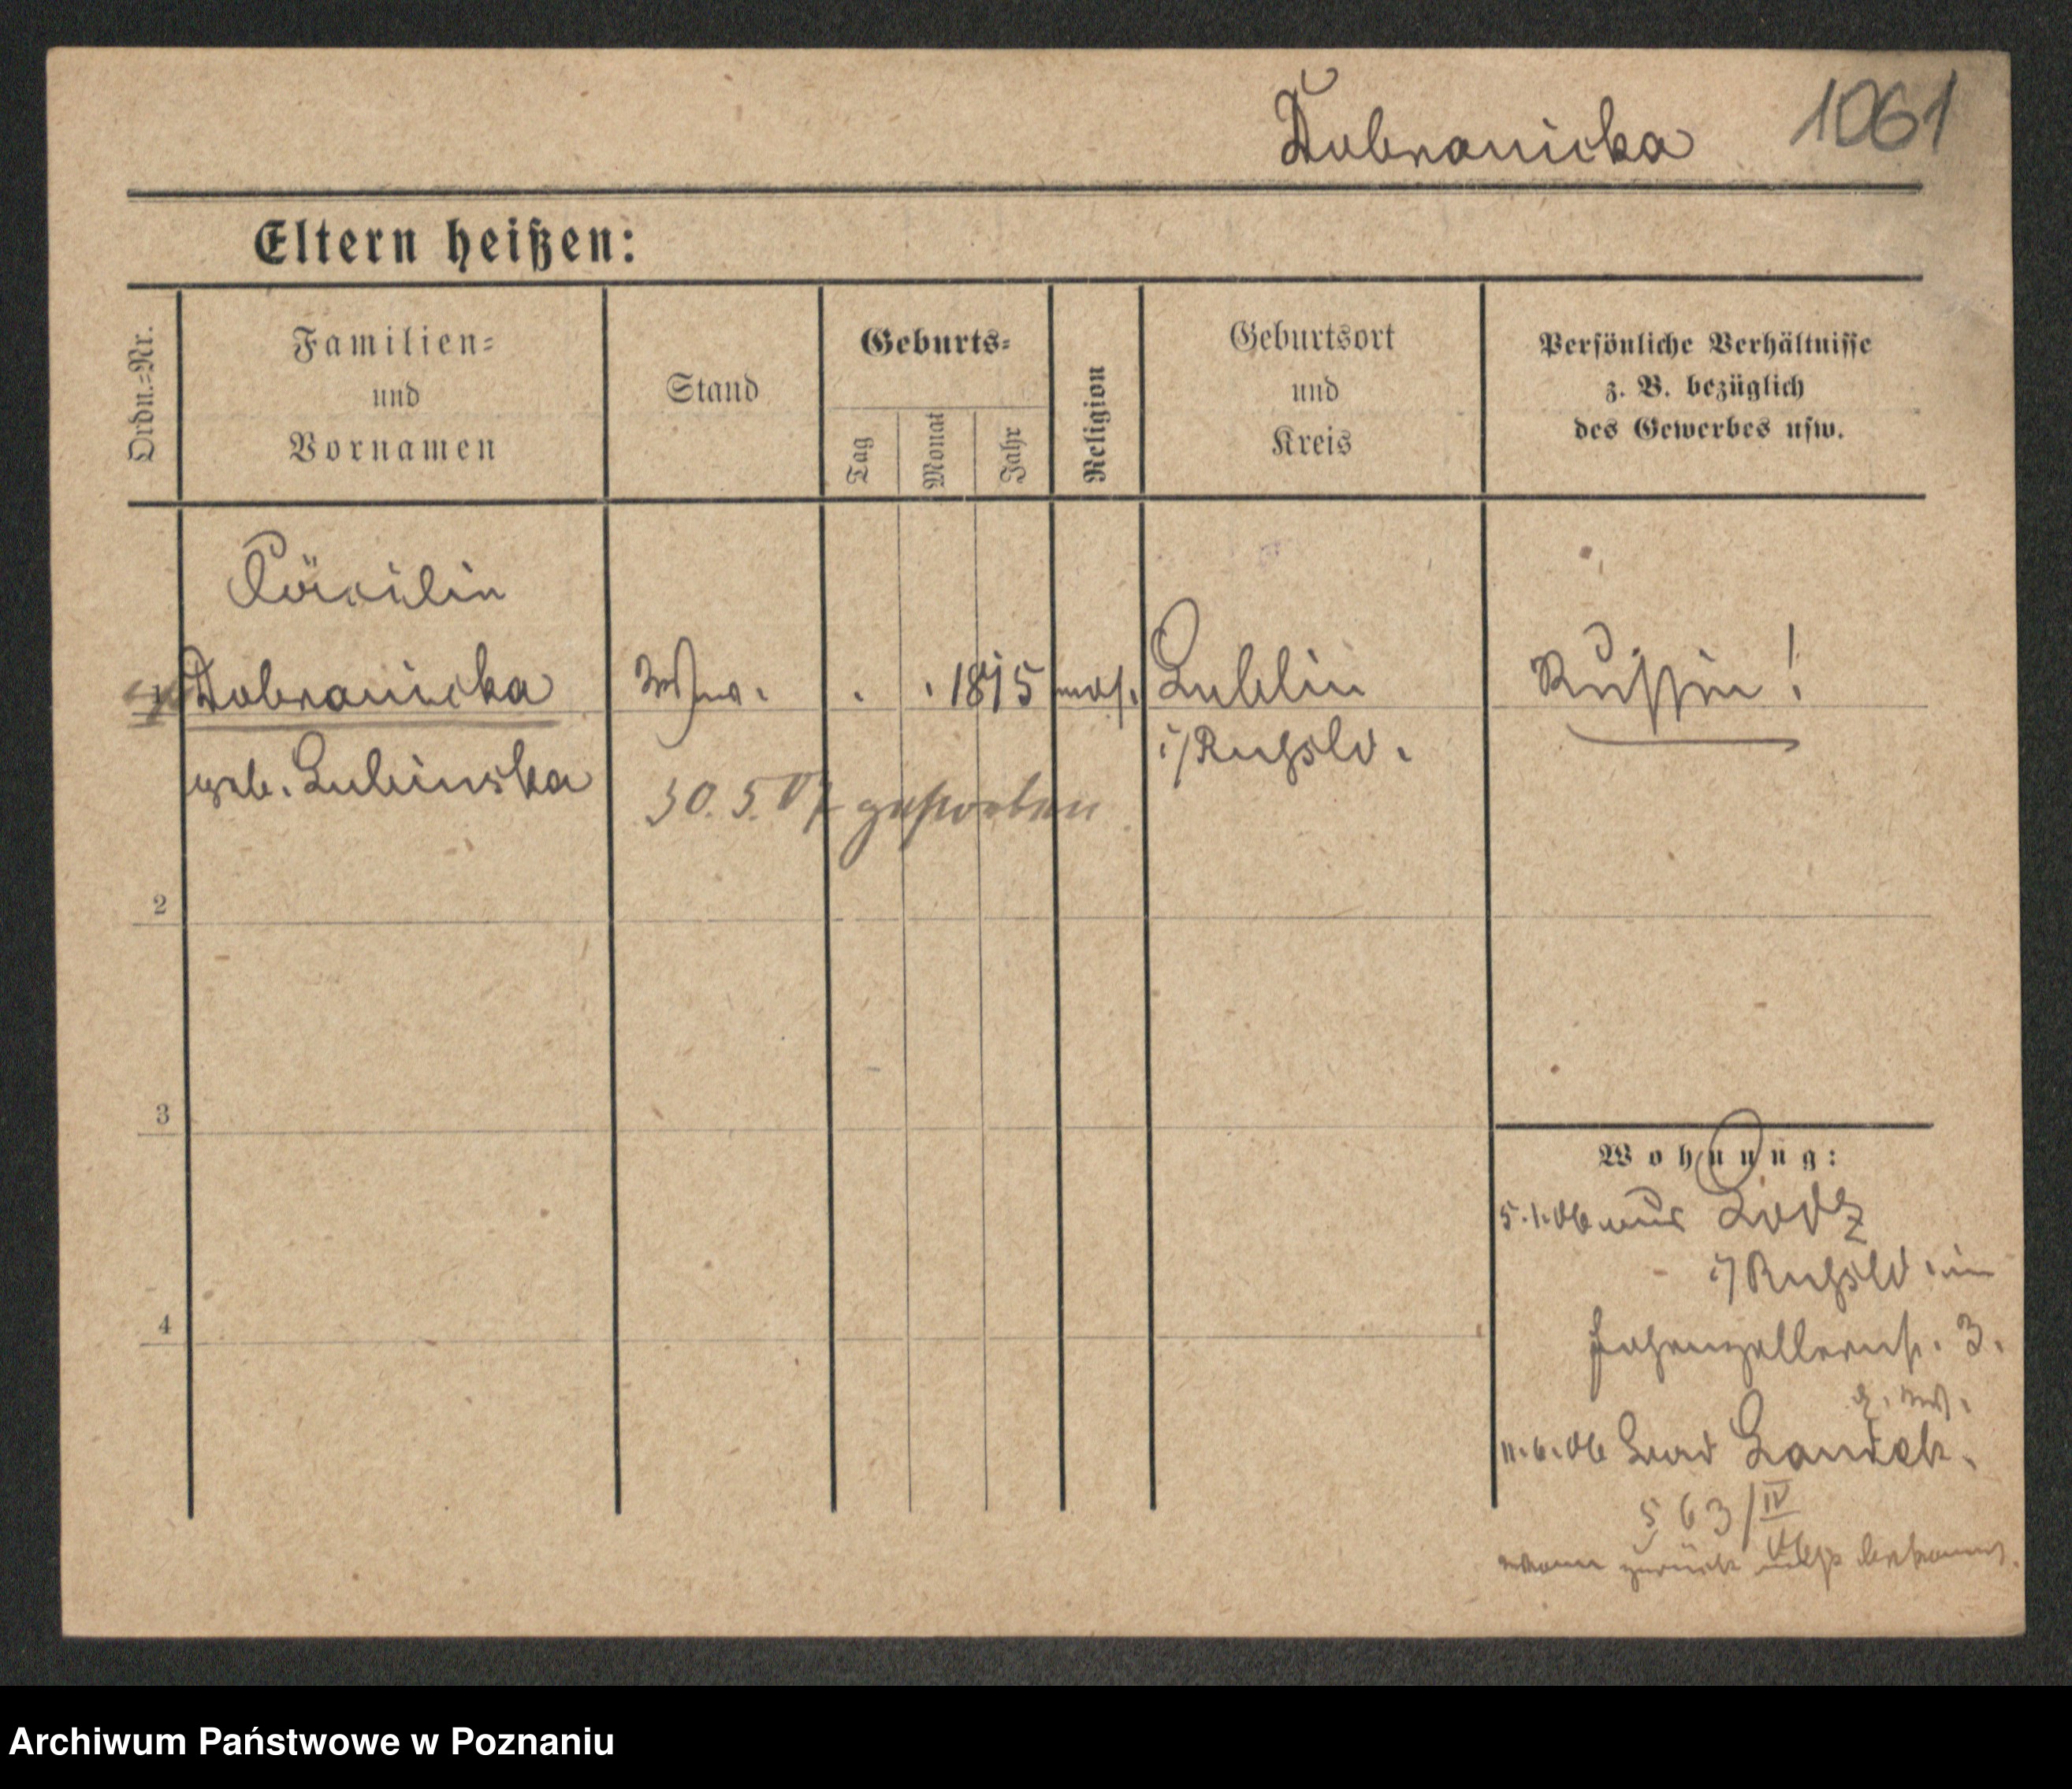 Dobranicka 1061
Eltern heißen:
Ordn.-Nr.
Familien-
und
Vornamen
Stand
Geburts-
Tag
Monat
Jahr
Religion
Geburtsort
und
Kreis
Persönliche Verhältnisse
z. B. bezüglich
des Gewerbes usw.
Cäcilie
1 Dobranicka Wwe. . . 1815 mos. Lublin Russin!
geb. Lubinska i/Rußld.
30.5.07 gestorben
2
3
4
Wohnung:
5.1.06 aus Lodz
i/Rußld. in
Hohenzollernst. 3.
11.6.06 Bad Landek.
563/IV
06
wann zurück nicht bekannt.
Archiwum Państwowe w Poznaniu